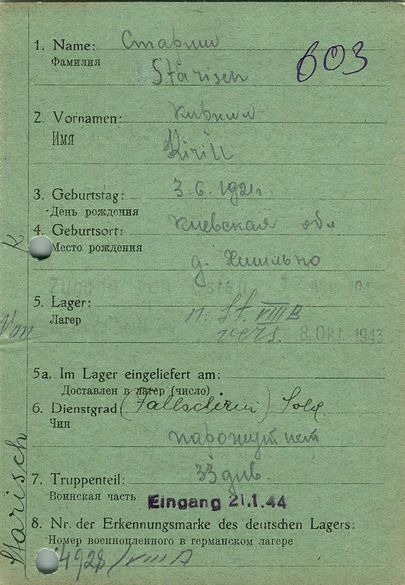 603
1. Name: Стариш
Фамилия Starisch
2. Vornamen: Кирилл
Имя Kirill
3. Geburtstag: 3.6.1921г.
День рождения
4. Geburtsort: Киевская обл
Место рождения
д.
Zugang von
5. Lager: n. St. VIII B
Лагер vers. 8. Okt. 1943
Von
5a. Im Lager eingeliefert am:
Доставлен в латер (число)
6. Dienstgrad (Fallschirm) Sold
Чин
7. Truppenteil: 33 див.
Воинская часть Eingang 21.1.44
8. Nr. der Erkennungsmarke des deutschen Lagers:
Номер военнопленного в германском лагере
4928/VIII A
K
Starisch